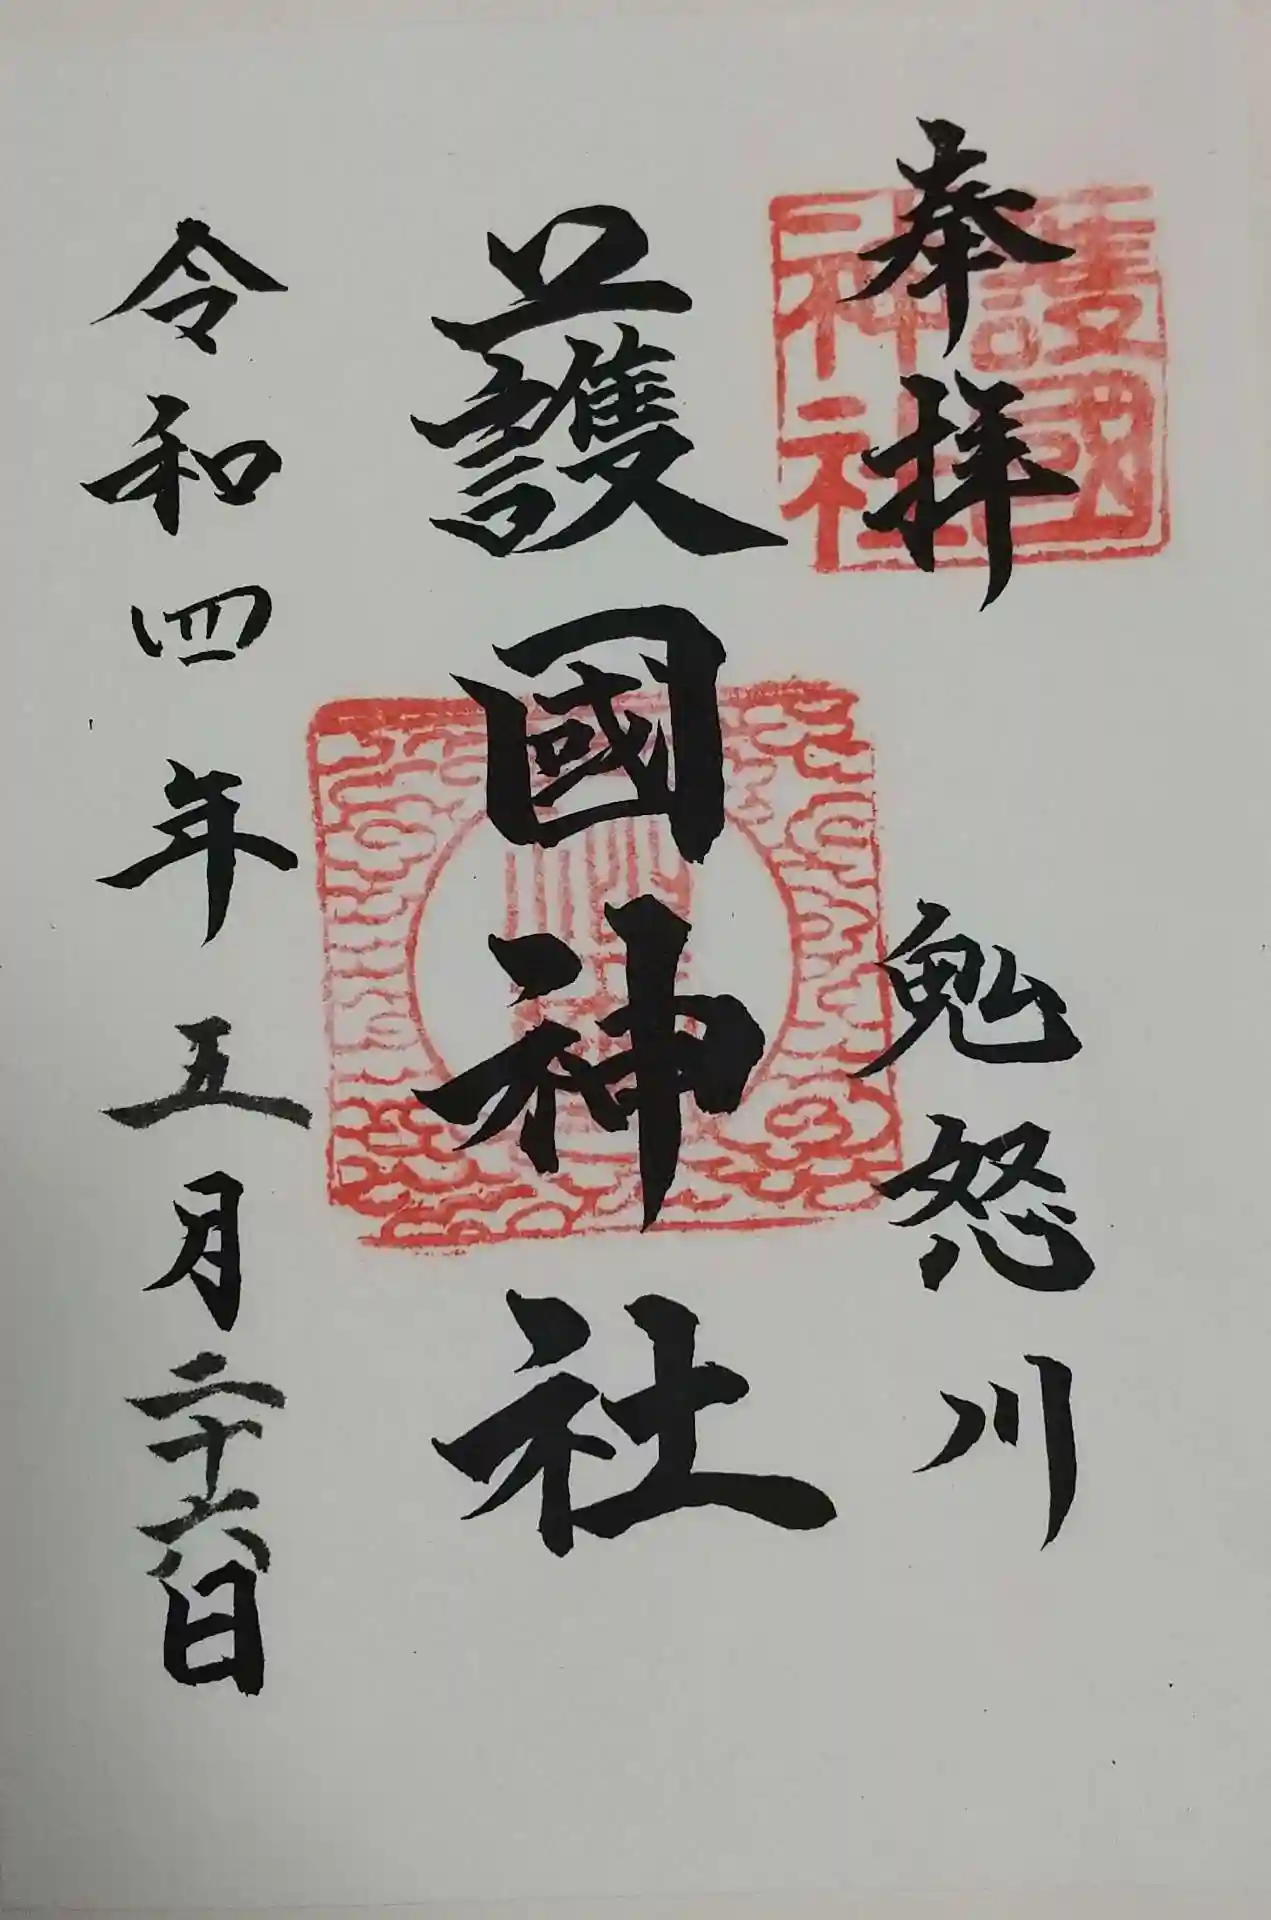 奉拝
鬼怒川
護國神社
令和四年五月二十六日
護國
神社